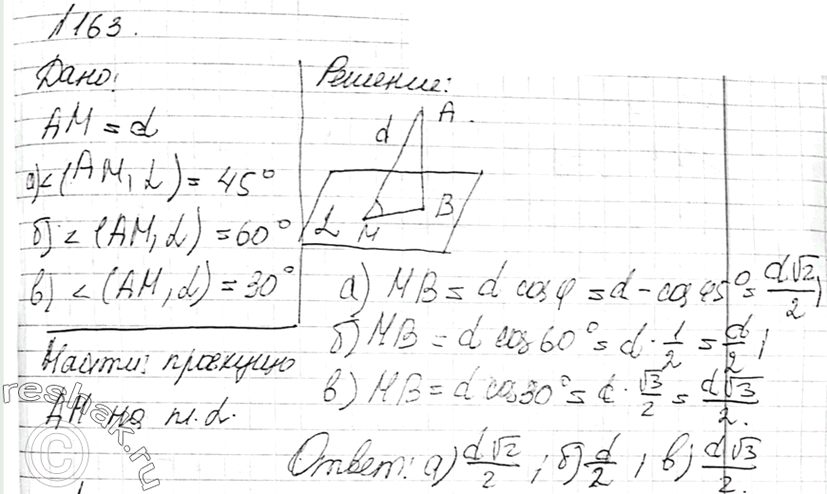 №163.
Дано:
AM = d
а) < (AM, α) = 45°
б) < (AM, α) = 60°
в) < (AM, α) = 30°
Найти: проекцию
AM на пл. α.
Решение:
A
d
B
α
M
а) MB = d cos φ = d - cos 45° = d√2/2;
б) MB = d cos 60° = d · 1/2 = d/2;
в) MB = d cos 30° = d · √3/2 = d√3/2.
Ответ: а) d√2/2; б) d/2; в) d√3/2.
reshak.ru
©